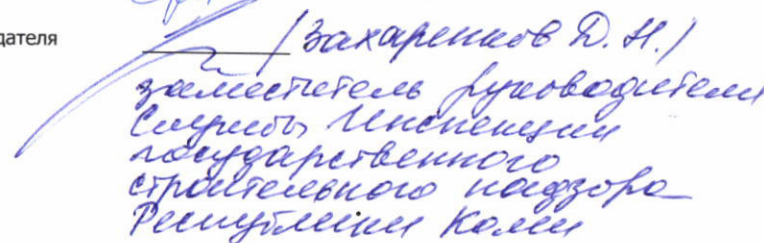 дателя / Захаренков Д. Н. /
заместитель руководителя
Службы Инспекции
государственного
строительного надзора
Республики Коми